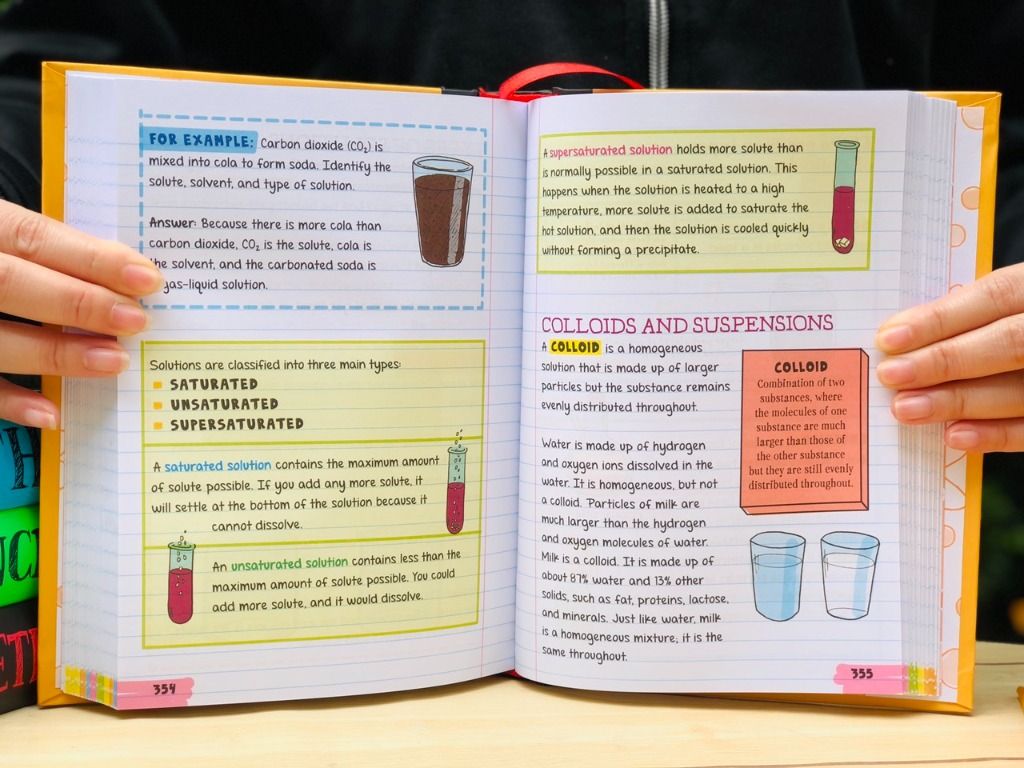 FOR EXAMPLE: Carbon dioxide (CO₂) is
mixed into cola to form soda. Identify the
solute, solvent, and type of solution.
Answer: Because there is more cola than
carbon dioxide, CO₂ is the solute, cola is
the solvent, and the carbonated soda is
gas-liquid solution.
Solutions are classified into three main types:
SATURATED
UNSATURATED
SUPERSATURATED
A saturated solution contains the maximum amount
of solute possible. If you add any more solute, it
will settle at the bottom of the solution because it
cannot dissolve.
An unsaturated solution contains less than the
maximum amount of solute possible. You could
add more solute, and it would dissolve.
354
A supersaturated solution holds more solute than
is normally possible in a saturated solution. This
happens when the solution is heated to a high
temperature, more solute is added to saturate the
hot solution, and then the solution is cooled quickly
without forming a precipitate.
COLLOIDS AND SUSPENSIONS
A COLLOID is a homogeneous
solution that is made up of larger
particles but the substance remains
evenly distributed throughout.
Water is made up of hydrogen
and oxygen ions dissolved in the
water. It is homogeneous, but not
a colloid. Particles of milk are
much larger than the hydrogen
and oxygen molecules of water.
Milk is a colloid. It is made up of
about 87% water and 13% other
solids, such as fat, proteins, lactose,
and minerals. Just like water, milk
is a homogeneous mixture; it is the
same throughout.
COLLOID
Combination of two
substances, where
the molecules of one
substance are much
larger than those of
the other substance
but they are still evenly
distributed throughout.
355